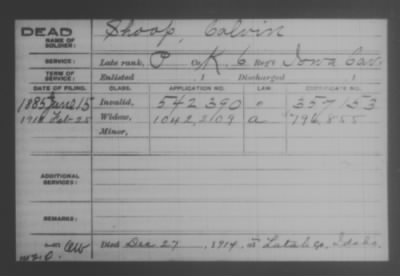 DEAD
NAME OF SOLDIER: Shoop, Calvin
SERVICE: Late rank, P Co. K, 6 Reg't Iowa Cav.
TERM OF SERVICE: Enlisted , 1 Discharged , 1
DATE OF FILING. CLASS. APPLICATION NO. LAW. CERTIFICATE NO.
1885 June 15 Invalid, 542,390 357153
Feb 25 Widow, 1042,209 a 796,855
Minor,
ADDITIONAL SERVICES:
REMARKS:
Died Dec 27, 1914, at Latah Co, Idaho.